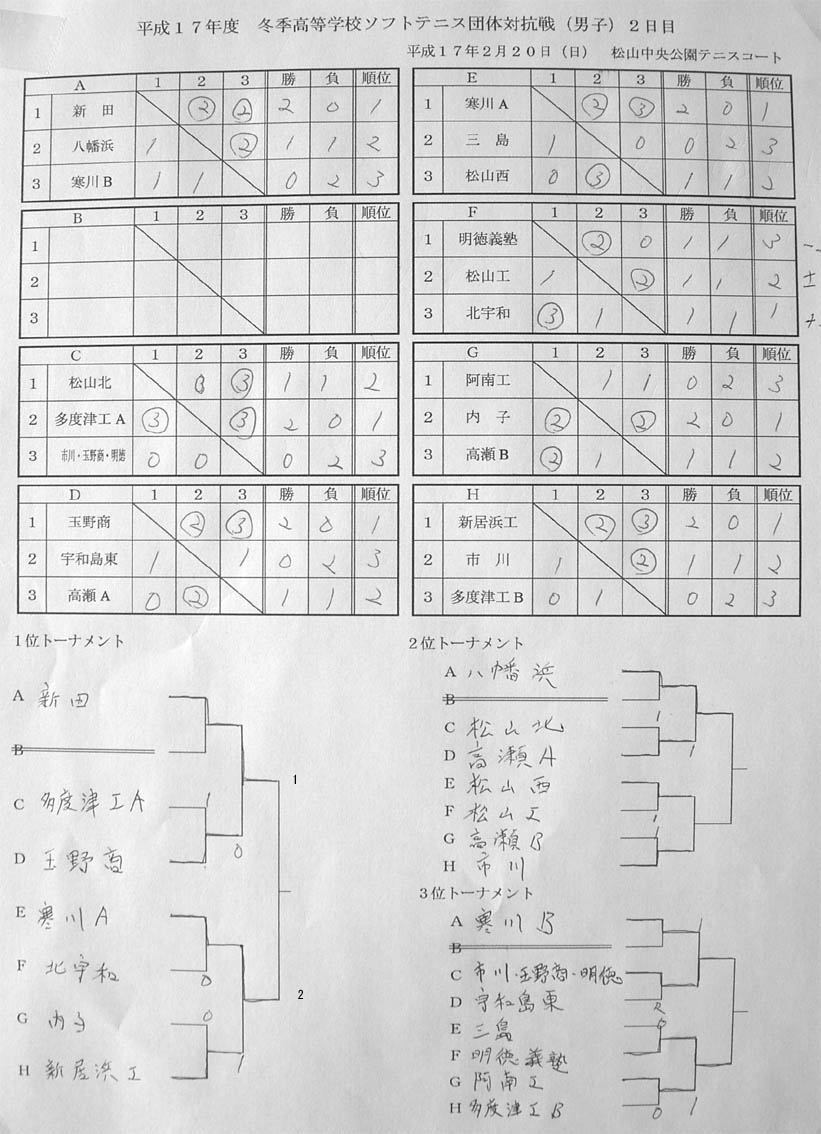 平成17年度　冬季高等学校ソフトテニス団体対抗戦（男子）2日目
平成17年2月20日（日）　松山中央公園テニスコート
A 1 2 3 勝 負 順位
1 新田 ② ② 2 0 1
2 八幡浜 1 ② 1 1 2
3 寒川B 1 1 0 2 3
B 1 2 3 勝 負 順位
1
2
3
C 1 2 3 勝 負 順位
1 松山北 0 ③ 1 1 2
2 多度津工A ③ ③ 2 0 1
3 市川・玉野商・明徳 0 0 0 2 3
D 1 2 3 勝 負 順位
1 玉野商 ② ③ 2 0 1
2 宇和島東 1 1 0 2 3
3 高瀬A 0 ② 1 1 2
E 1 2 3 勝 負 順位
1 寒川A ② ③ 2 0 1
2 三島 1 0 0 2 3
3 松山西 0 ③ 1 1 2
F 1 2 3 勝 負 順位
1 明徳義塾 ② 0 1 1 3 -
2 松山工 1 ② 1 1 2 ±
3 北宇和 ③ 1 1 1 1 +
G 1 2 3 勝 負 順位
1 阿南工 1 1 0 2 3
2 内子 ② ② 2 0 1
3 高瀬B ② 1 1 1 2
H 1 2 3 勝 負 順位
1 新居浜工 ② ③ 2 0 1
2 市川 1 ② 1 1 2
3 多度津工B 0 1 0 2 3
1位トーナメント
A 新田
B
C 多度津工A 1
D 玉野商 0
1
E 寒川A
F 北宇和 0
2
G 内子 0
H 新居浜工 1
2位トーナメント
A 八幡浜
B
C 松山北 1
D 高瀬A 1
E 松山西
F 松山工 1
G 高瀬B 1
H 市川
3位トーナメント
A 寒川B 1
B
C 市川・玉野商・明徳
D 宇和島東 2
E 三島 0
F 明徳義塾
G 阿南工
H 多度津工B 0 1